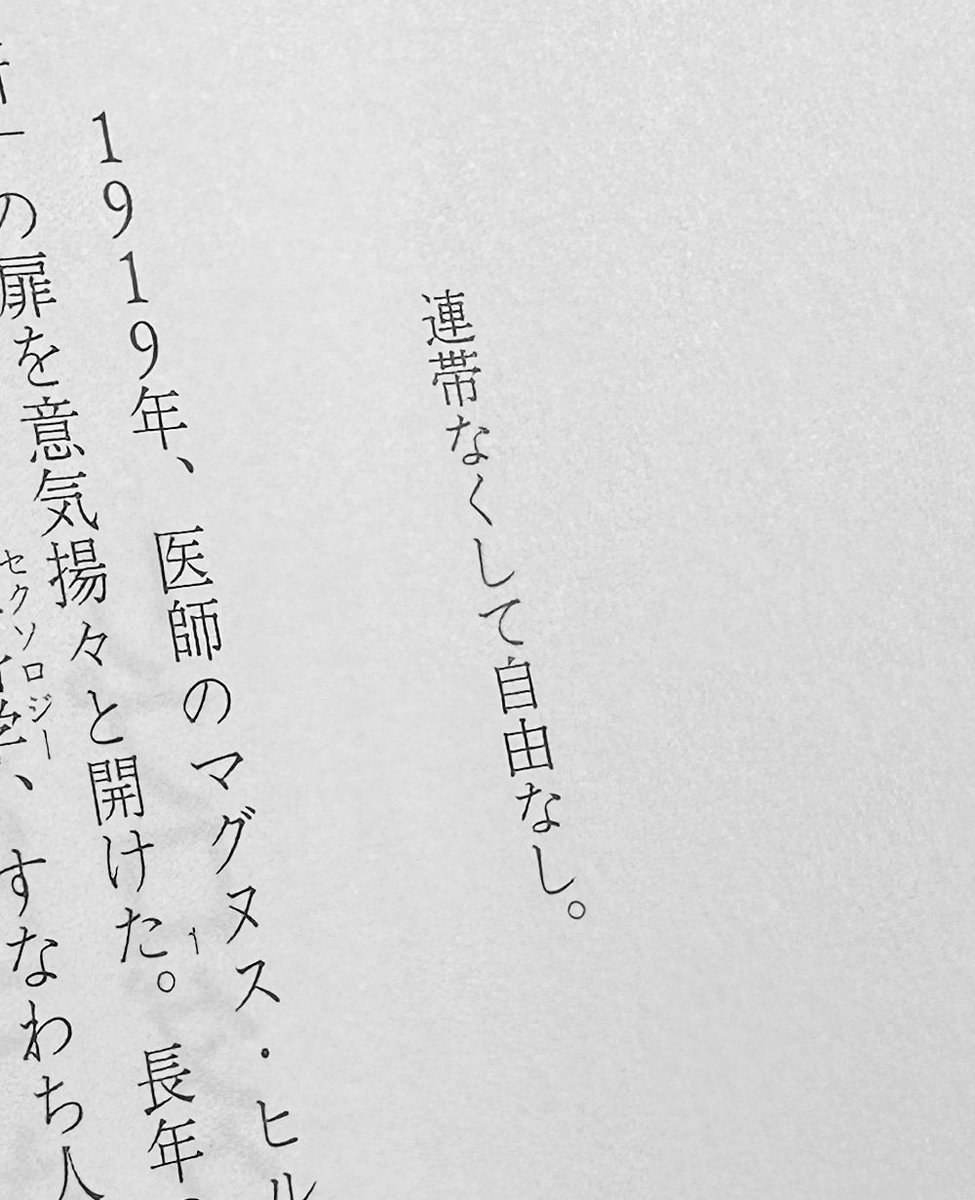 連帯なくして自由なし。
1919年、医師のマグヌス・ヒル
の扉を意気揚々と開けた。1長年
セクソロジー
、すなわち人